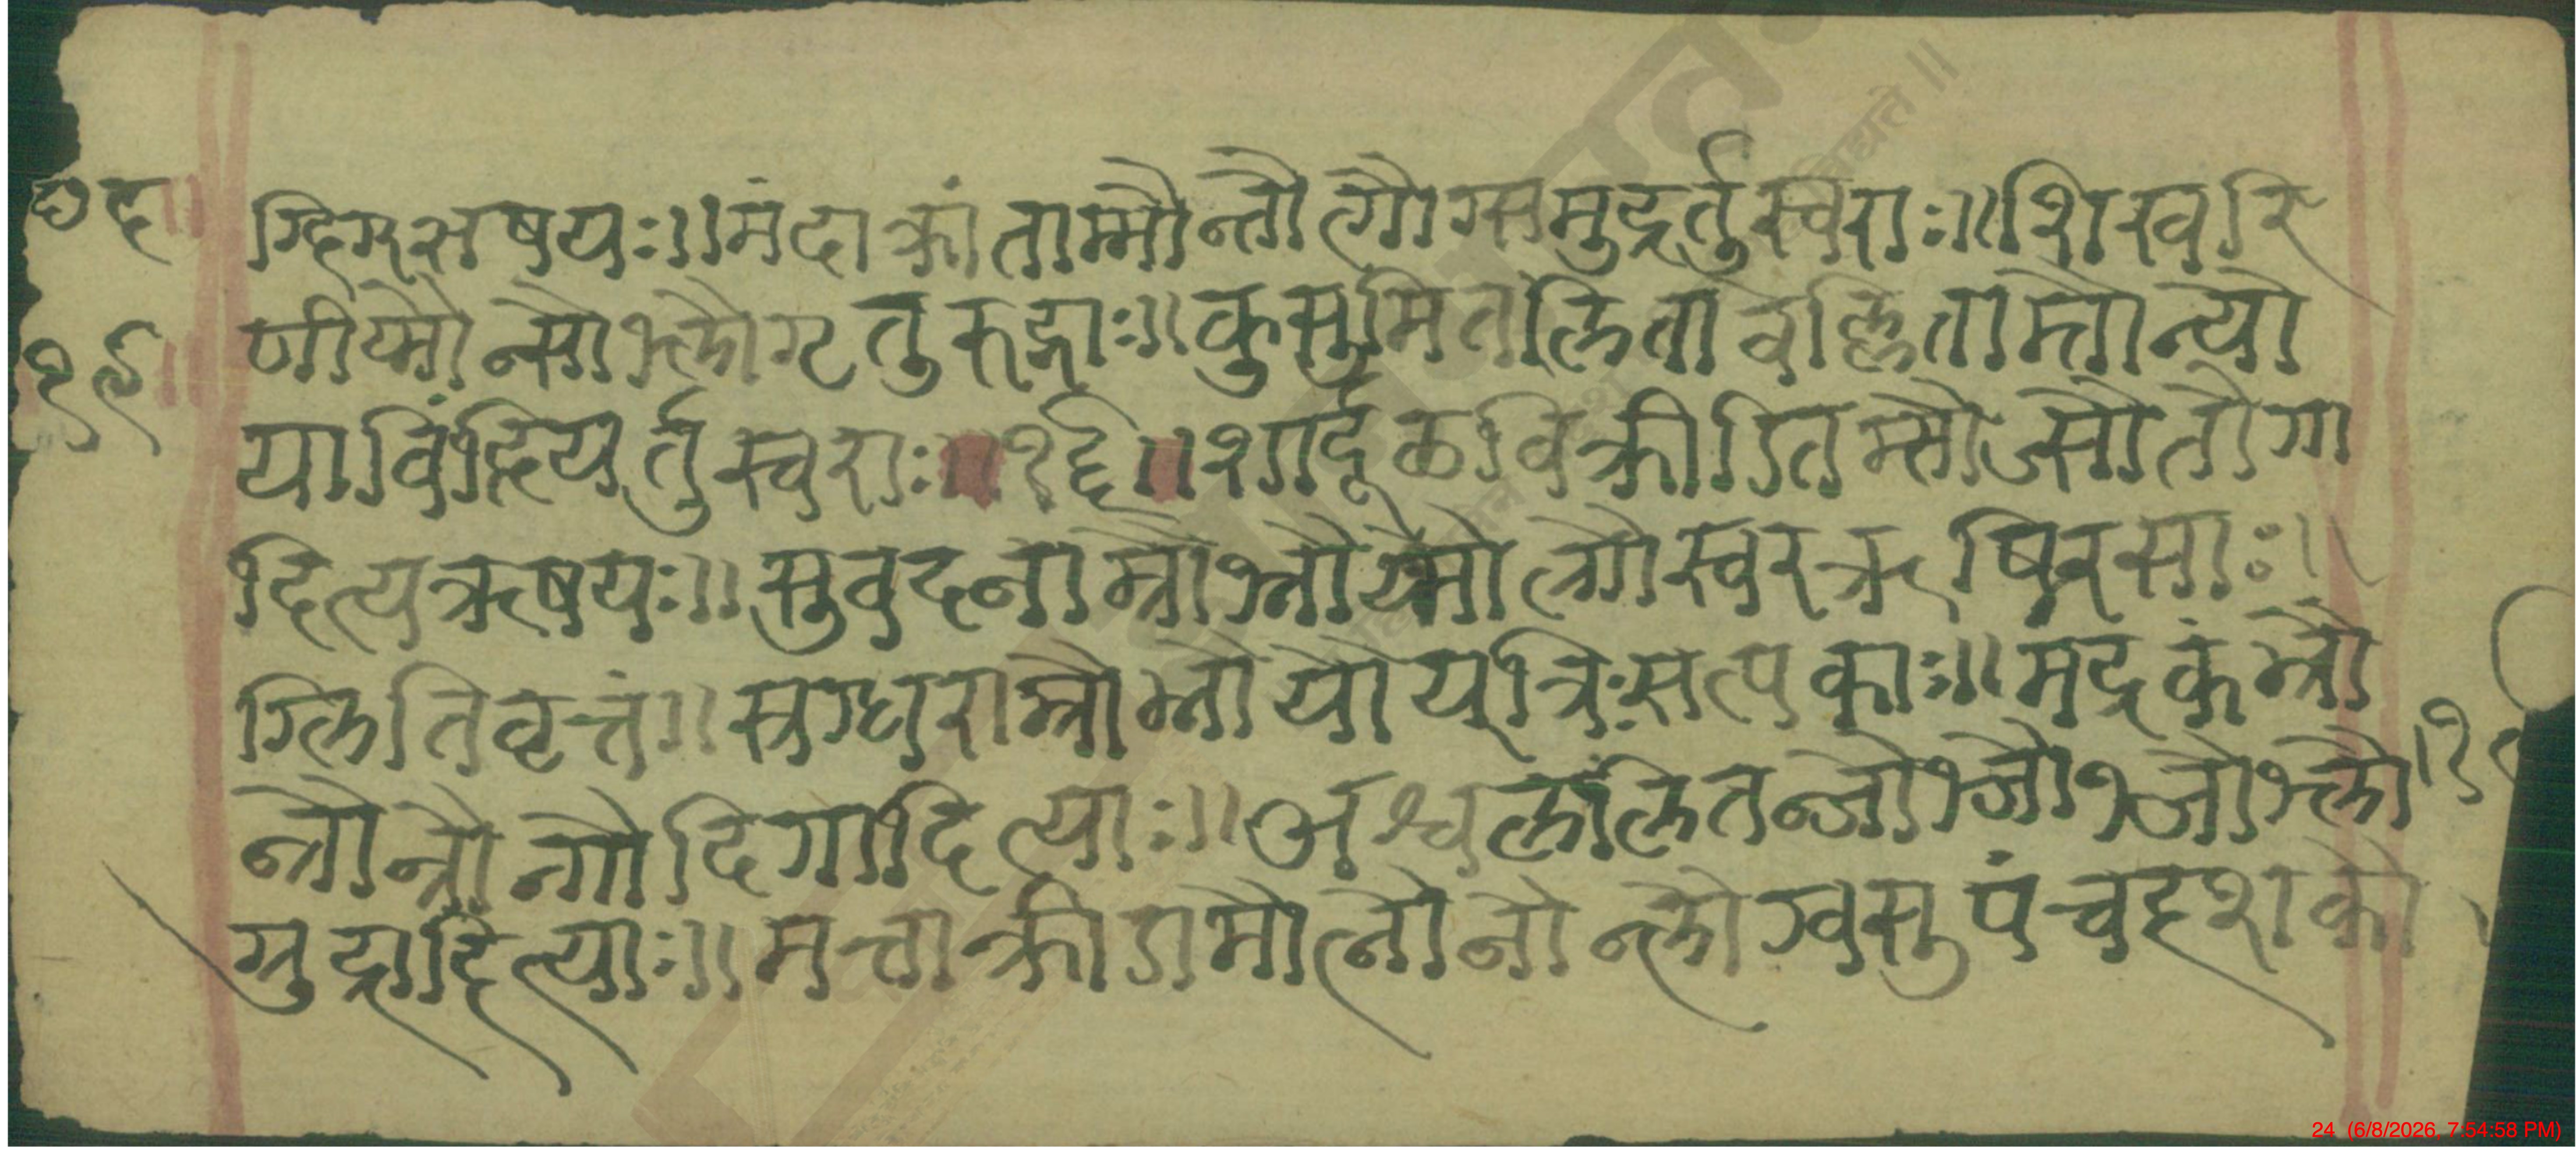 छंद॥
१९॥
ग्दिग्रसषयः॥मंदाक्रांताम्भौन्तौत्गौग्समुद्रर्तुस्वराः॥शिखरि
णीय्मौन्सौभ्लौगृतुरुद्राः॥कुसुमितलितावेल्लिताम्तौन्यौ
याविंद्रियर्तुस्वराः॥१६॥शार्दूळविक्रीडितम्सौज्सौतौगा
दित्यऋषयः॥सुवदनाम्रौभ्नौय्भौल्गौस्वरऋषिरसाः॥
ग्लितिवृत्तं॥स्रग्धराम्रौभ्नौयौय्त्रिःसप्तकाः॥मद्रकंभ्रौ
न्रौन्रौन्गौदिगादित्याः॥अश्वललितन्जौभ्जौभ्जौभ्लौ
ग्रुद्रादित्याः॥मत्ताक्रीडामौत्नौनौन्लौग्वसुपंचदशकौ